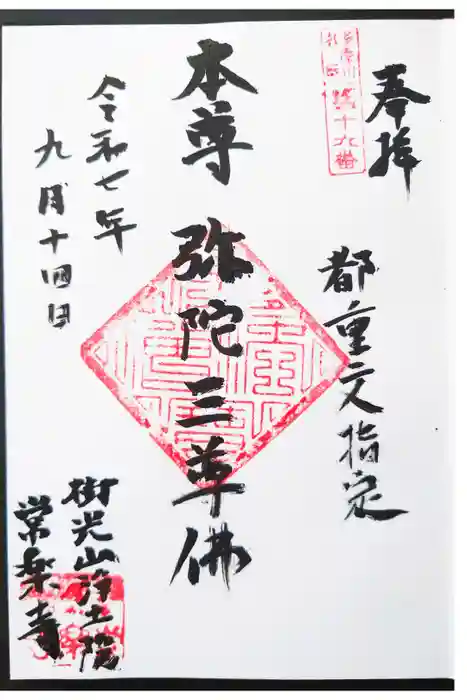 奉拝
第十九番
都重文指定
本尊 弥陀三尊佛
令和七年
九月十四日
街光山浄土院
常楽寺